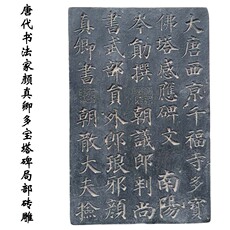 大唐西京千福寺多寶
佛塔感應碑文 南陽
岑勛撰 朝議郎判尚
書武部員外郎琅邪顏
真卿書 朝散大夫撿
唐代书法家颜真卿多宝塔碑局部砖雕